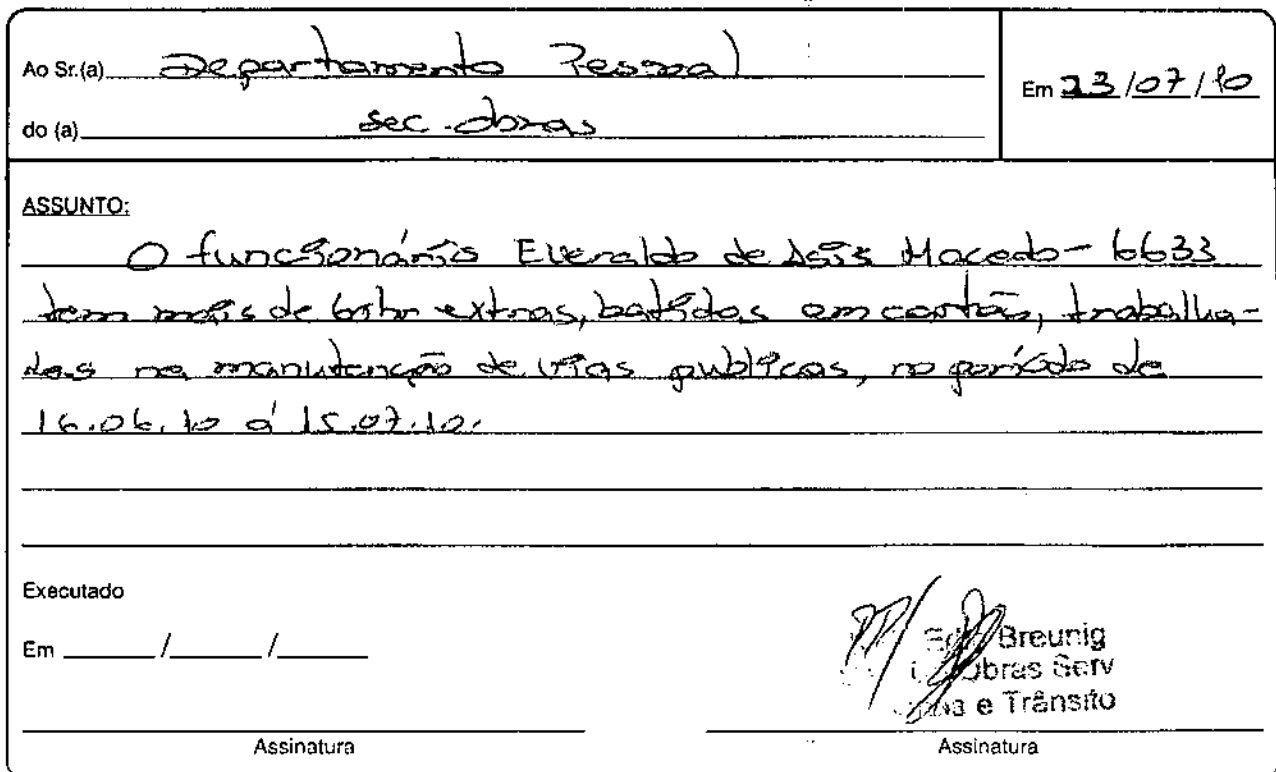 Ao Sr.(a) Departamento Pessoal
do (a) Sec. obras
Em 23/07/10
ASSUNTO:
O funcionário Everaldo de Assis Macedo - 6633
tem mais de extras, batidas em cartão, trabalha-
das na manutenção de vias publicas, no período de
16.06.10 á 15.07.10.
Executado
Em ____/____/____
Breunig
Obras Serv
e Trânsito
Assinatura
Assinatura